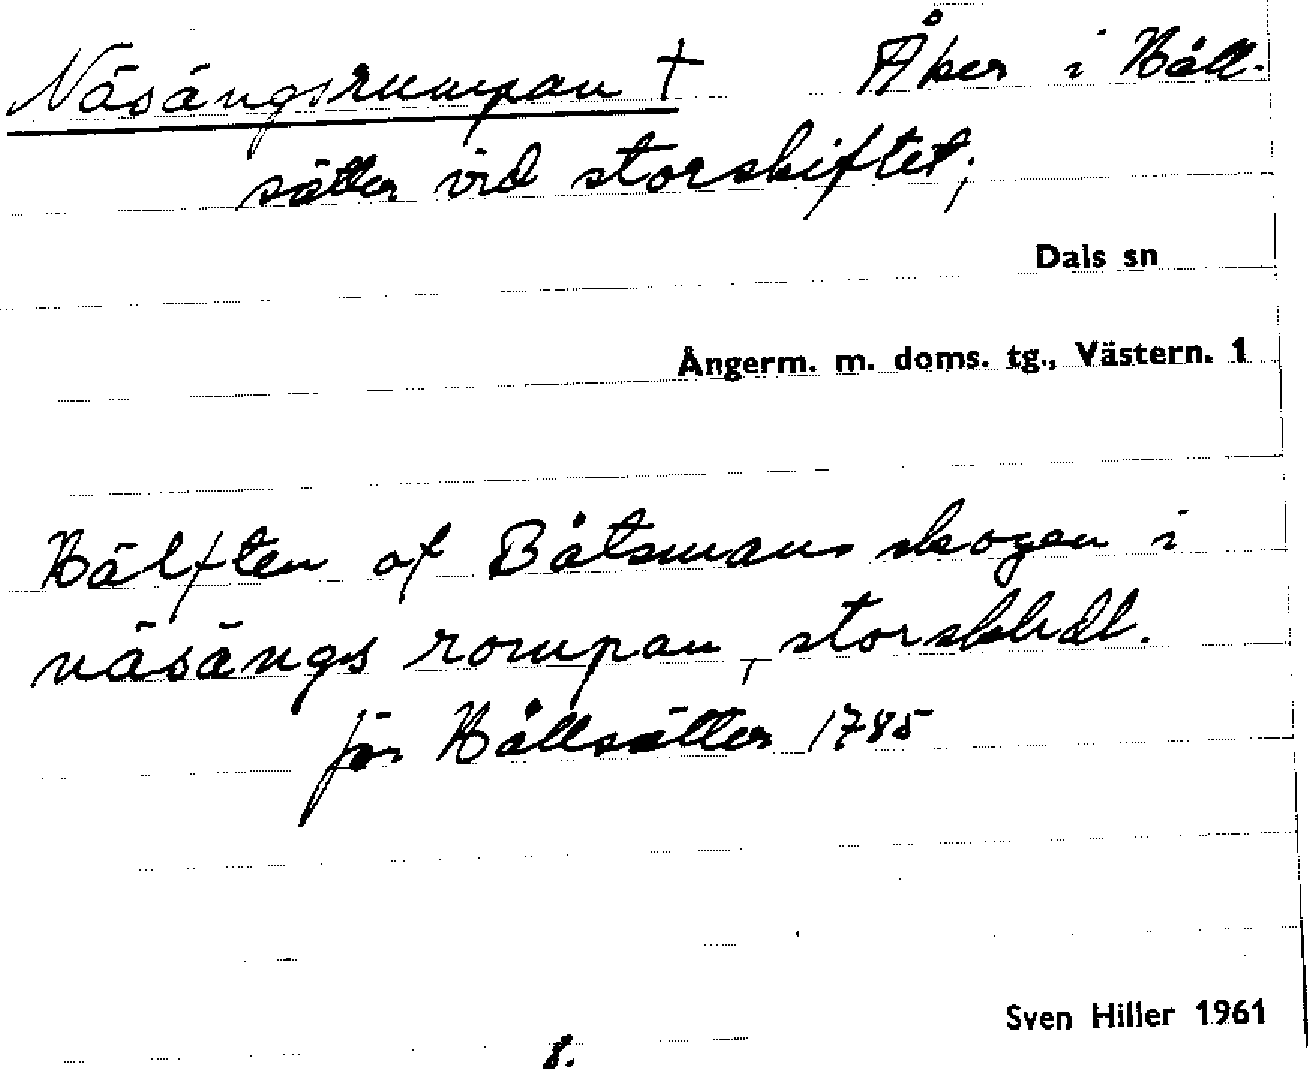 Näsängsrumpan † Åker i Håll-
sätter vid storskiftet;
Dals sn
Ångerm. m. doms. tg., Västern. 1
Hälften af Båtsmans skogen i
näsängs rompan, storsk
för Hållsätter 1785
Sven Hiller 1961
8.